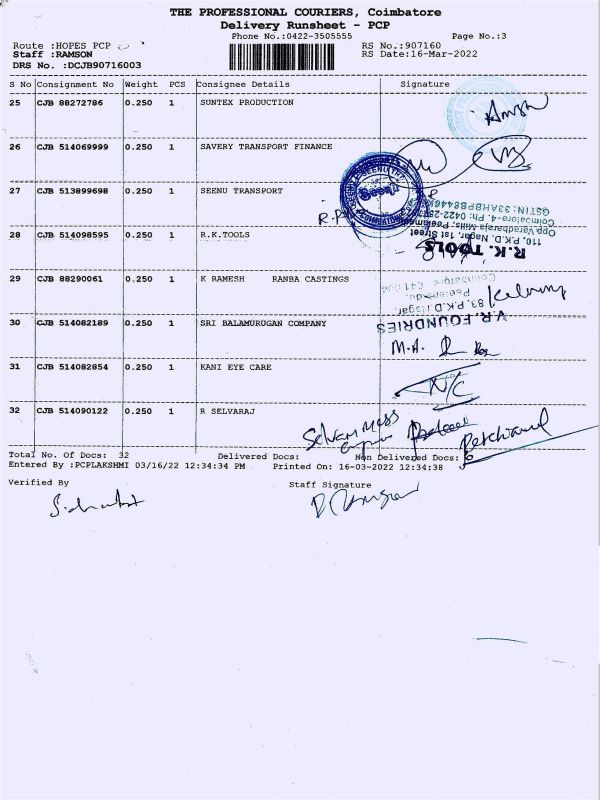 THE PROFESSIONAL COURIERS, Coimbatore
Delivery Runsheet - PCP
Phone No.:0422-3505555 Page No.:3
Route :HOPES PCP RS No.:907160
Staff :RAMSON RS Date:16-Mar-2022
DRS No. :DCJB90716003
S No Consignment No Weight PCS Consignee Details Signature
25 CJB 88272786 0.250 1 SUNTEX PRODUCTION
26 CJB 514069999 0.250 1 SAVERY TRANSPORT FINANCE
27 CJB 513899698 0.250 1 SEENU TRANSPORT
28 CJB 514098595 0.250 1 R.K.TOOLS
R. K. TOOLS
110, P.K.D. Nagar, 1st Street
Opp.Varadharaja Mills, Peelamedu
29 CJB 88290061 0.250 1 K RAMESH RANBA CASTINGS
V.R. FOUNDRIES
83, P.K.D. Nagar
30 CJB 514082189 0.250 1 SRI BALAMURUGAN COMPANY
M.A.
31 CJB 514082854 0.250 1 KANI EYE CARE
N/C
32 CJB 514090122 0.250 1 R SELVARAJ
Selvam Mess
Total No. Of Docs: 32 Delivered Docs: Non Delivered Docs:
Entered By :PCPLAKSHMI 03/16/22 12:34:34 PM Printed On: 16-03-2022 12:34:38
Verified By Staff Signature